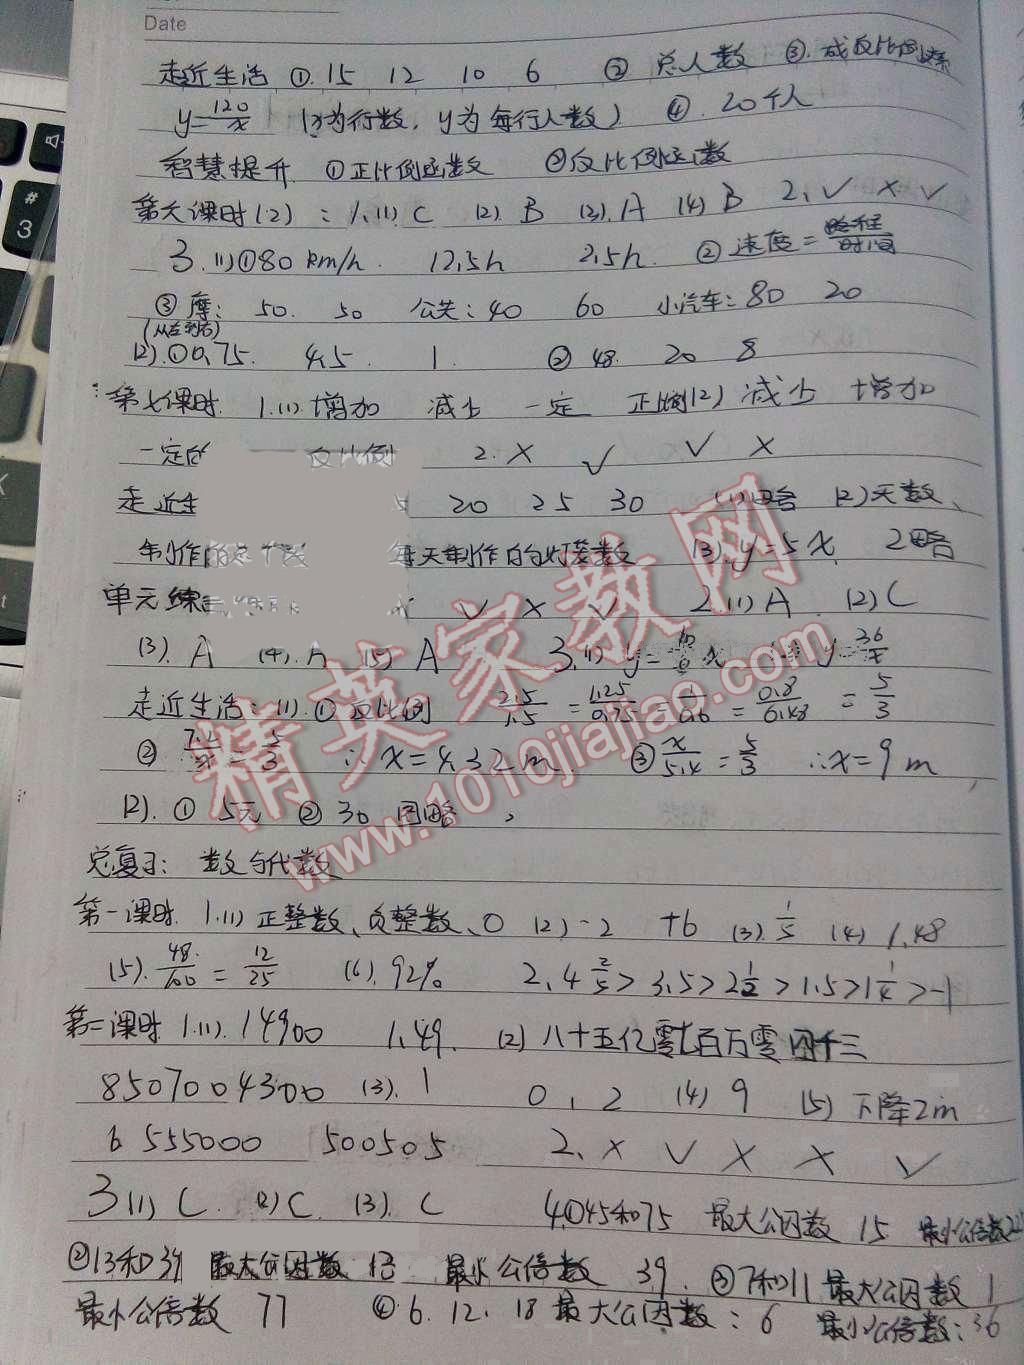 Date
走近生活 ①. 15 12 10 6 ② 总人数 ③. 成反比例关系
y=120/x (x为行数, y为每行人数) ④. 20个人
智慧提升 ①正比例函数 ②反比例函数
第六课时(2): 1.(1) C (2). B (3). A (4) B 2. √ × √
3.(1)①80 km/h. 12.5h 2.5h. ②速度=路程/时间
③摩: 50. 50 公共: 40 60 小汽车: 80 20
(从左到右)
(2).①0.75. 4.5 1. ② 48. 20 8
第七课时. 1.(1).增加 减少 一定 正比例(2) 减少 增加
一定 反比例 2. × √ √ ×
走近生 20 25 30 (1)略 (2)天数、
每天制作的灯笼数 (3). y=5x. 2略
单元练 √ × √ 2.(1) A. (2) C
(3). A (4). A (5) A 3.(1) y= x y=36/x
走近生活: (1). ① 正比例 2.5/1.5 = 1.25/0.75 = 1/0.6 = 0.8/0.48 = 5/3
② 7.2/x = 5/3 ∴ x=4.32 m ③ x/5.4 = 5/3 ∴x=9 m
(2). ① 5元 ② 30 图略
总复习: 数与代数
第一课时. 1.(1) 正整数、负整数、0 (2) -2 +6 (3). 1/5 (4) 1.48
(5). 48/100 = 12/25 (6). 92% 2. 4 2/5 > 3.5 > 2 1/2 > 1.5 > 1 1/4 > -1
第二课时 1.(1). 14900 1.49. (2) 八十五亿零七百万零四千三
8507004300 (3). 1 0, 2 (4) 9 (5) 下降2m
6 555000 500505 2. × √ × × √
3(1) C. (2)C. (3). C 4.①45和75 最大公因数 15 最小公倍数
②13和39 最大公因数 13 最小公倍数 39. ③7和11 最大公因数 1
最小公倍数 77 ④6. 12. 18 最大公因数: 6 最小公倍数: 36
精英家教网
www.1010jiajiao.com
# 3